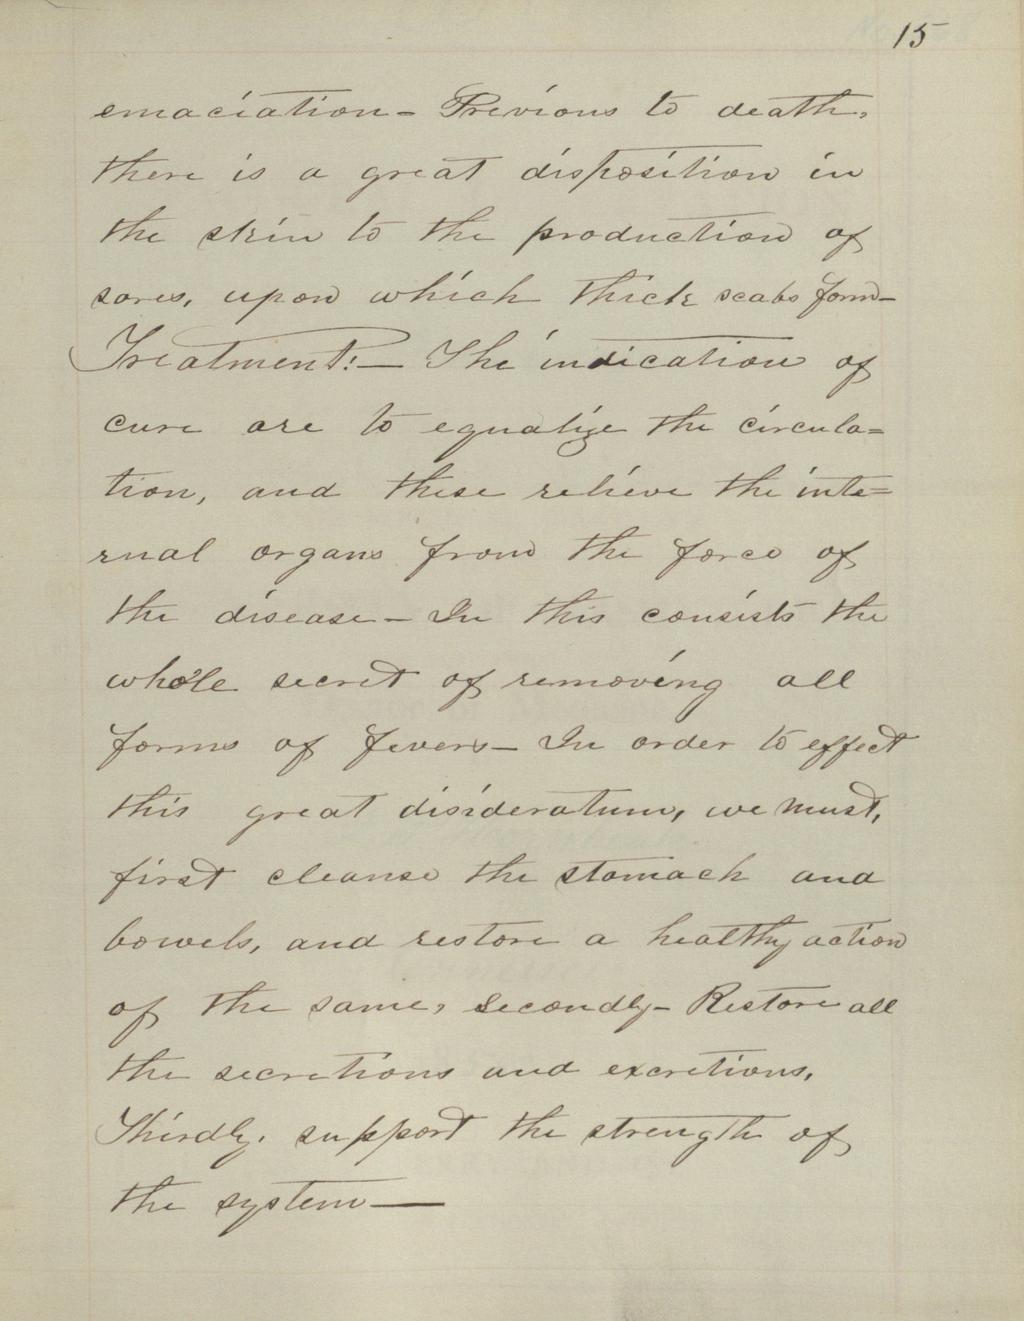 15
emaciation – Previous to death,
there is a great disposition in
the skin to the production of
sores, upon which thick scabs form –
Treatment: – The indication of
cure are to equalize the circula=
tion, and these relieve the inte=
rnal organs from the force of
the disease – In this consists the
whole secret of removing all
forms of fevers – In order to effect
this great disideratum, we must,
first cleanse the stomach and
bowels, and restore a healthy action
of the same, Secondly – Restore all
the secretions and excretions,
Thirdly, support the strength of
the system —